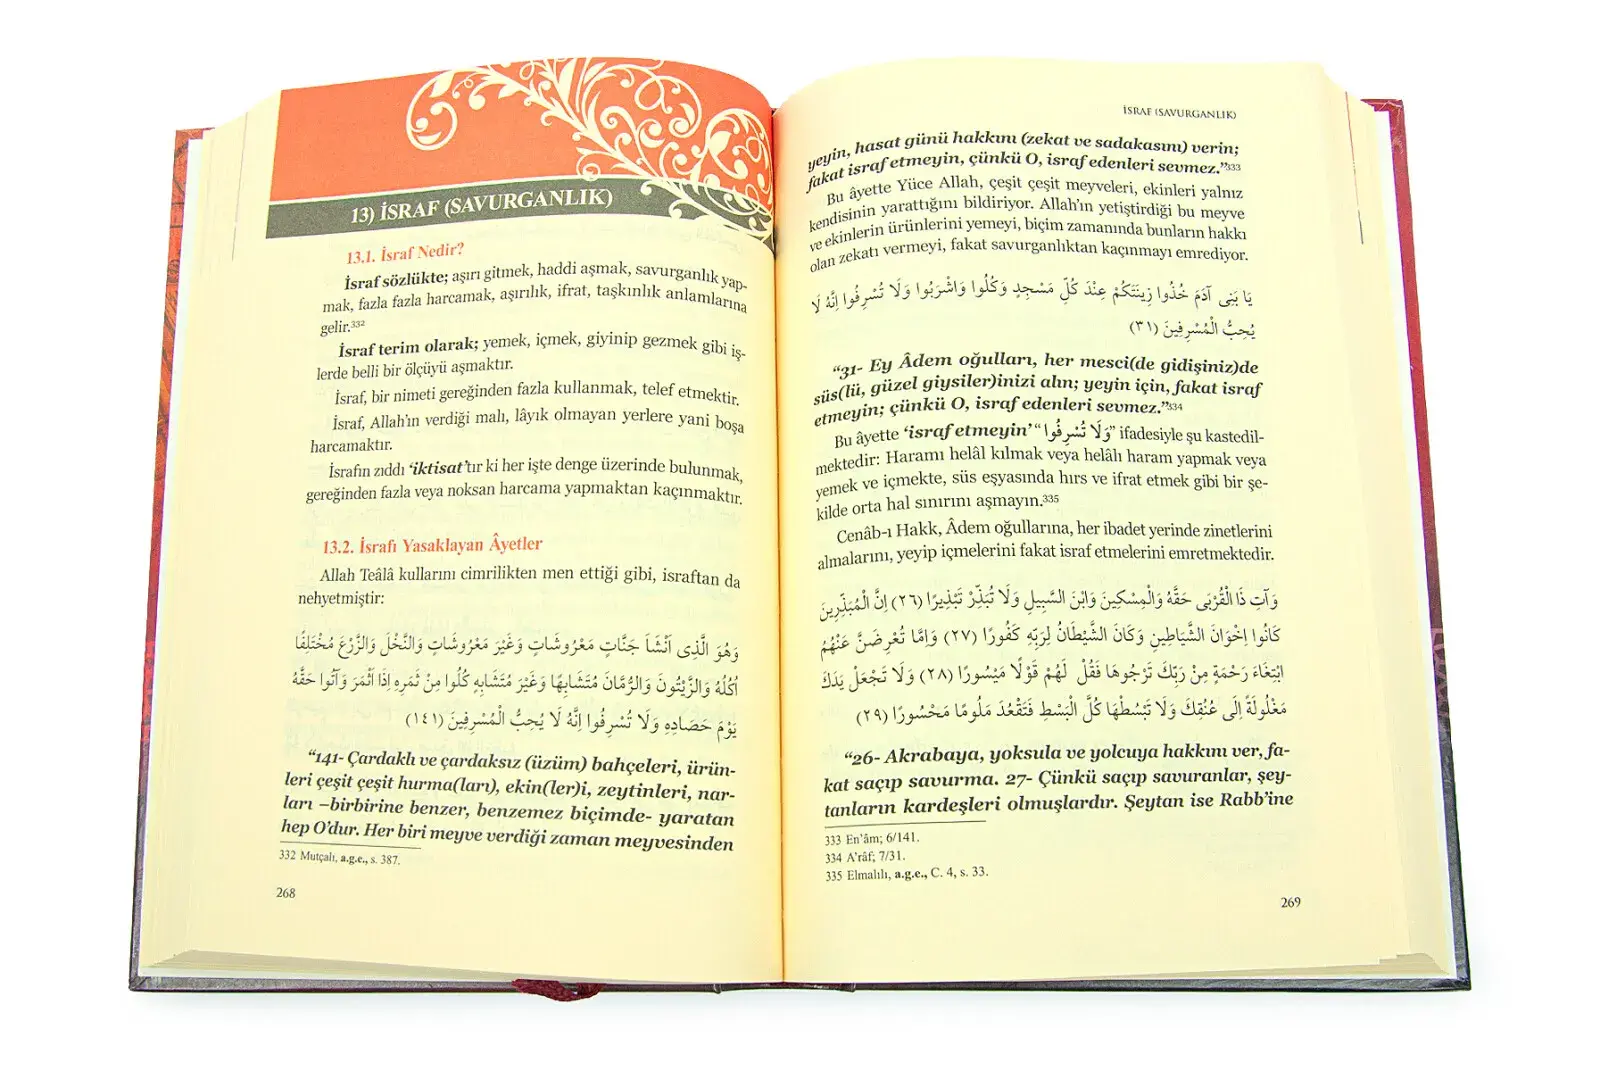 13) İSRAF (SAVURGANLIK)
13.1. İsraf Nedir?
İsraf sözlükte; aşırı gitmek, haddi aşmak, savurganlık yap-
mak, fazla fazla harcamak, aşırılık, ifrat, taşkınlık anlamlarına
gelir.332
İsraf terim olarak; yemek, içmek, giyinip gezmek gibi iş-
lerde belli bir ölçüyü aşmaktır.
İsraf, bir nimeti gereğinden fazla kullanmak, telef etmektir.
İsraf, Allah'ın verdiği malı, lâyık olmayan yerlere yani boşa
harcamaktır.
İsrafın zıddı 'iktisat'tır ki her işte denge üzerinde bulunmak,
gereğinden fazla veya noksan harcama yapmaktan kaçınmaktır.
13.2. İsrafı Yasaklayan Âyetler
Allah Teâlâ kullarını cimrilikten men ettiği gibi, israftan da
nehyetmiştir:
وَهُوَ الَّذِى اَنْشَاَ جَنَّاتٍ مَعْرُوشَاتٍ وَغَيْرَ مَعْرُوشَاتٍ وَالنَّخْلَ وَالزَّرْعَ مُخْتَلِفًا
اُكُلُهُ وَالزَّيْتُونَ وَالرُّمَّانَ مُتَشَابِهًا وَغَيْرَ مُتَشَابِهٍ كُلُوا مِنْ ثَمَرِهِ اِذَا اَثْمَرَ وَآتُوا حَقَّهُ
يَوْمَ حَصَادِهِ وَلَا تُسْرِفُوا اِنَّهُ لَا يُحِبُّ الْمُسْرِفِينَ (١٤١)
“141- Çardaklı ve çardaksız (üzüm) bahçeleri, ürün-
leri çeşit çeşit hurma(ları), ekin(ler)i, zeytinleri, nar-
ları –birbirine benzer, benzemez biçimde- yaratan
hep O'dur. Her biri meyve verdiği zaman meyvesinden
332 Mutçalı, a.g.e., s. 387.
268
İSRAF (SAVURGANLIK)
yeyin, hasat günü hakkını (zekat ve sadakasını) verin;
fakat israf etmeyin, çünkü O, israf edenleri sevmez.”333
Bu âyette Yüce Allah, çeşit çeşit meyveleri, ekinleri yalnız
kendisinin yarattığını bildiriyor. Allah'ın yetiştirdiği bu meyve
ve ekinlerin ürünlerini yemeyi, biçim zamanında bunların hakkı
olan zekatı vermeyi, fakat savurganlıktan kaçınmayı emrediyor.
يَا بَنِى آدَمَ خُذُوا زِينَتَكُمْ عِنْدَ كُلِّ مَسْجِدٍ وَكُلُوا وَاشْرَبُوا وَلَا تُسْرِفُوا اِنَّهُ لَا
يُحِبُّ الْمُسْرِفِينَ (٣١)
“31- Ey Âdem oğulları, her mesci(de gidişiniz)de
süs(lü, güzel giysiler)inizi alın; yeyin için, fakat israf
etmeyin; çünkü O, israf edenleri sevmez.”334
Bu âyette 'israf etmeyin' “وَلَا تُسْرِفُوا” ifadesiyle şu kastedil-
mektedir: Haramı helâl kılmak veya helâlı haram yapmak veya
yemek ve içmekte, süs eşyasında hırs ve ifrat etmek gibi bir şe-
kilde orta hal sınırını aşmayın.335
Cenâb-ı Hakk, Âdem oğullarına, her ibadet yerinde zinetlerini
almalarını, yeyip içmelerini fakat israf etmelerini emretmektedir.
وَآتِ ذَا الْقُرْبَى حَقَّهُ وَالْمِسْكِينَ وَابْنَ السَّبِيلِ وَلَا تُبَذِّرْ تَبْذِيرًا (٢٦) اِنَّ الْمُبَذِّرِينَ
كَانُوا اِخْوَانَ الشَّيَاطِينِ وَكَانَ الشَّيْطَانُ لِرَبِّهِ كَفُورًا (٢٧) وَاِمَّا تُعْرِضَنَّ عَنْهُمُ
ابْتِغَاءَ رَحْمَةٍ مِنْ رَبِّكَ تَرْجُوهَا فَقُلْ لَهُمْ قَوْلًا مَيْسُورًا (٢٨) وَلَا تَجْعَلْ يَدَكَ
مَغْلُولَةً اِلَى عُنُقِكَ وَلَا تَبْسُطْهَا كُلَّ الْبَسْطِ فَتَقْعُدَ مَلُومًا مَحْسُورًا (٢٩)
“26- Akrabaya, yoksula ve yolcuya hakkını ver, fa-
kat saçıp savurma. 27- Çünkü saçıp savuranlar, şey-
tanların kardeşleri olmuşlardır. Şeytan ise Rabb'ine
333 En'âm; 6/141.
334 A'râf; 7/31.
335 Elmalılı, a.g.e., C. 4, s. 33.
269